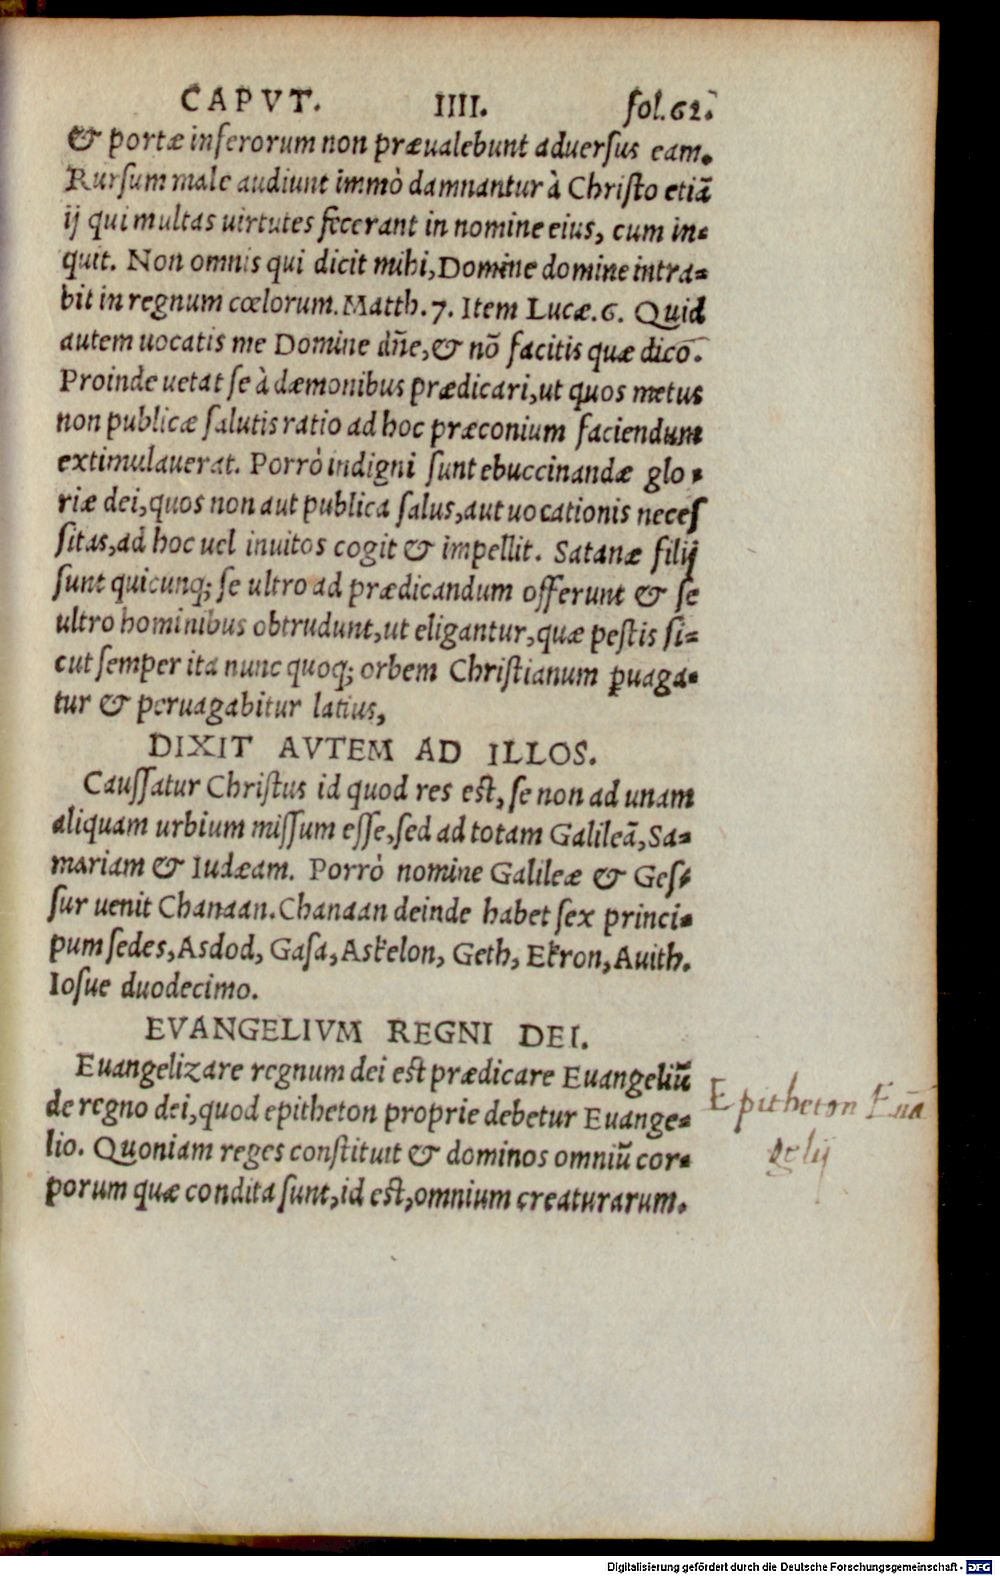 CAPVT. IIII. fol. 62.
& portæ inferorum non præualebunt aduersus eam.
Rursum male audiunt immò damnantur à Christo etiã
ij qui multas uirtutes fecerant in nomine eius, cum in=
quit. Non omnis qui dicit mihi, Domine domine intra=
bit in regnum cœlorum. Matth. 7. Item Lucæ. 6. Quid
autem uocatis me Domine dñe, & nõ facitis quæ dico.
Proinde uetat se à dæmonibus prædicari, ut quos metus
non publicæ salutis ratio ad hoc præconium faciendum
extimulauerat. Porrò indigni sunt ebuccinandæ glo=
riæ dei, quos non aut publica salus, aut uocationis neces
sitas, ad hoc uel inuitos cogit & impellit. Satanæ filij
sunt quicunq; se ultro ad prædicandum offerunt & se
ultro hominibus obtrudunt, ut eligantur, quæ pestis si=
cut semper ita nunc quoq; orbem Christianum ꝑuaga=
tur & peruagabitur latius,
DIXIT AVTEM AD ILLOS.
Caussatur Christus id quod res est, se non ad unam
aliquam urbium missum esse, sed ad totam Galileã, Sa=
mariam & Iudæam. Porrò nomine Galileæ & Ges=
sur uenit Chanaan. Chanaan deinde habet sex princi=
pum sedes, Asdod, Gasa, Askelon, Geth, Ekron, Auith.
Iosue duodecimo.
EVANGELIVM REGNI DEI.
Euangelizare regnum dei est prædicare Euangeliũ
de regno dei, quod epitheton proprie debetur Euange=
lio. Quoniam reges constituit & dominos omniũ cor=
porum quæ condita sunt, id est, omnium creaturarum.
Epitheton Euã
gelij
Digitalisierung gefördert durch die Deutsche Forschungsgemeinschaft - DFG